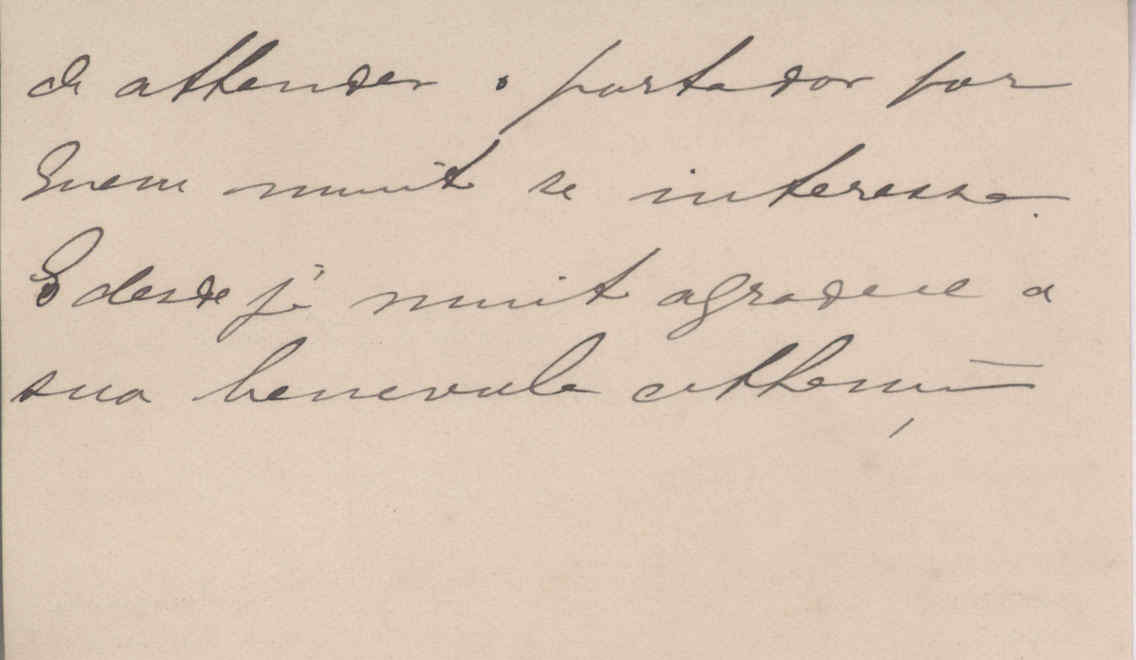 de attender o portador por
quem muito se interessa.
E desde já muito agradece a
sua benevola attenção